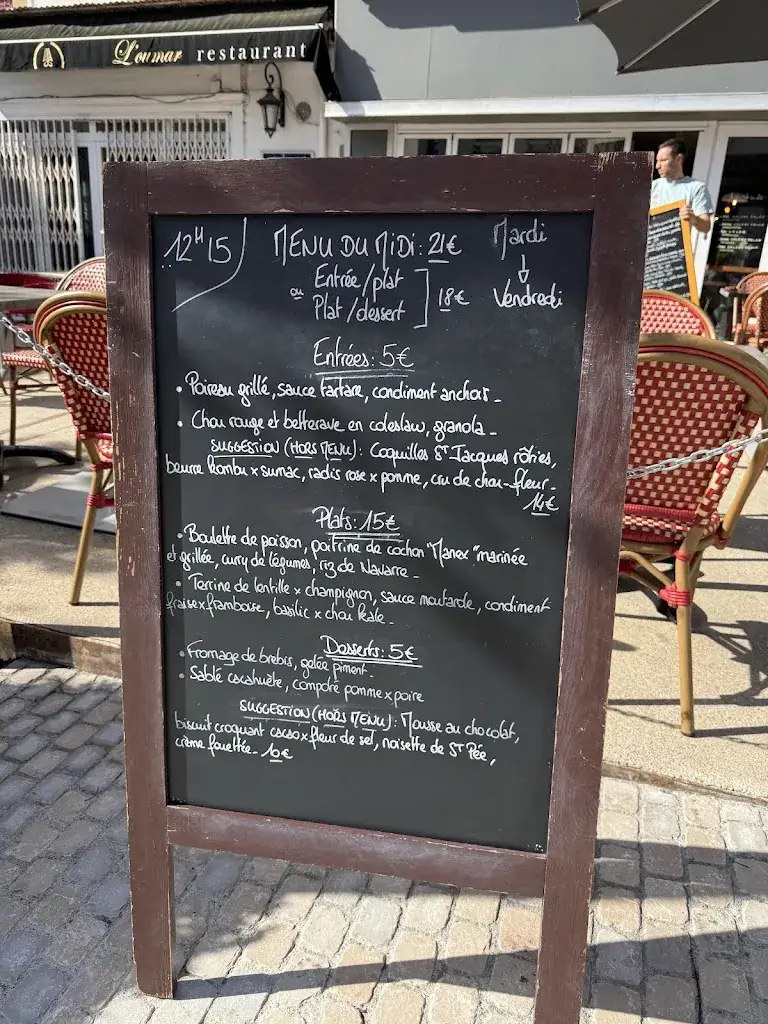 L'oumar restaurant
12H15
MENU DU MIDI: 21€
Mardi
Vendredi
Entrée/plat
ou
Plat/dessert
18€
Entrées: 5€
• Poireau grillé, sauce tartare, condiment anchois -
• Chou rouge et betterave en coleslaw, granola -
SUGGESTION (HORS MENU): Coquilles ST Jacques rôties,
beurre kombu x sumac, radis rose x pomme, cru de chou-fleur -
14€
Plats: 15€
• Boulette de poisson, poitrine de cochon "Manex" marinée
et grillée, curry de légumes, riz de Navarre -
• Terrine de lentille x champignon, sauce moutarde, condiment
fraise x framboise, basilic x chou kale -
Desserts: 5€
• Fromage de brebis, gelée piment -
• Sablé cacahuète, compote pomme x poire
SUGGESTION (HORS MENU): Mousse au chocolat,
biscuit croquant cacao x fleur de sel, noisette de ST Pée,
crème fouettée - 10€